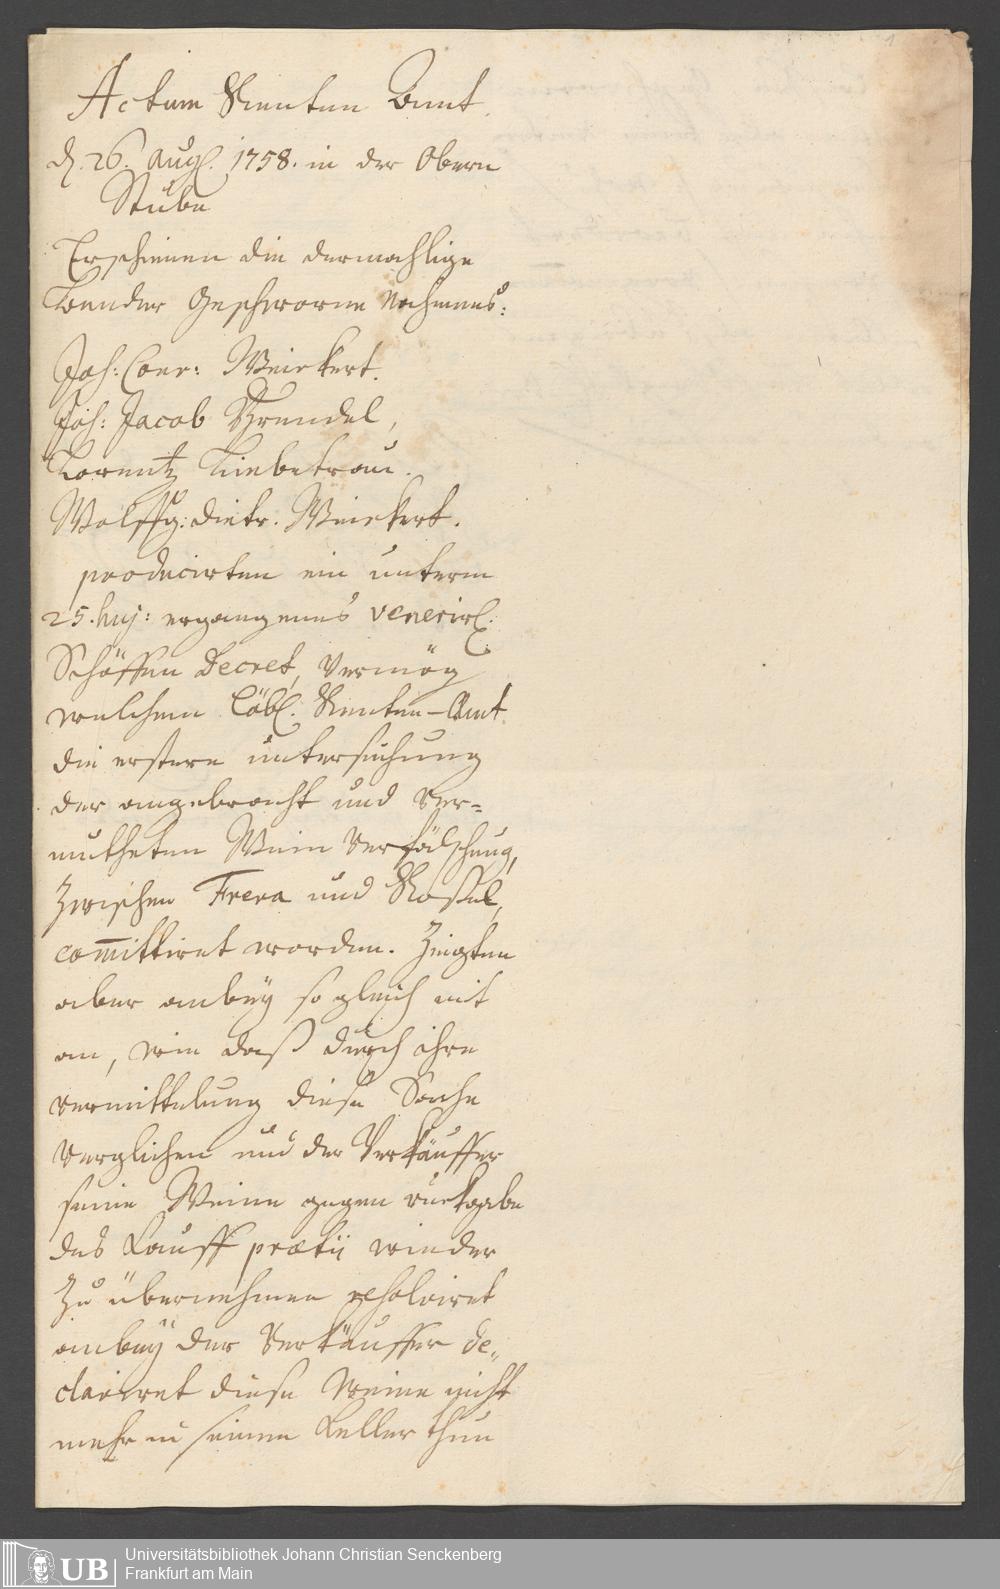 Actum Renten Amt.
d. 26. Augl. 1758. in der Obern
Stube
Erschienen die dermahlige
Bender Geschworne Nahmens:
Joh: Conr: Weickert.
Joh: Jacob Grendel,
Lorentz Liebetrau.
Wolffg: dietr. Weickert.
producirten ein unterm
25. huj: ergangenes venerirl.
Schöffen Decret, vermög
welchem Löbl. Renten-Amt
die erstere untersuchung
der angebracht und ver=
mutheten Wein Verfälschung,
zwischen Frera und Rossel,
com̅ittiret worden. Zeigten
aber anbey so gleich mit
an, wie daß durch ihre
vermittelung diese Sache
verglichen und der Verkäuffer
seine Weine gegen ruckgabe
des Kauff pretii wieder
Zu übernehmen resolviret
anbey der Verkäuffer de„
clariret diese Weine nicht
mehr in seinen Keller thun
1
UB
Universitätsbibliothek Johann Christian Senckenberg
Frankfurt am Main